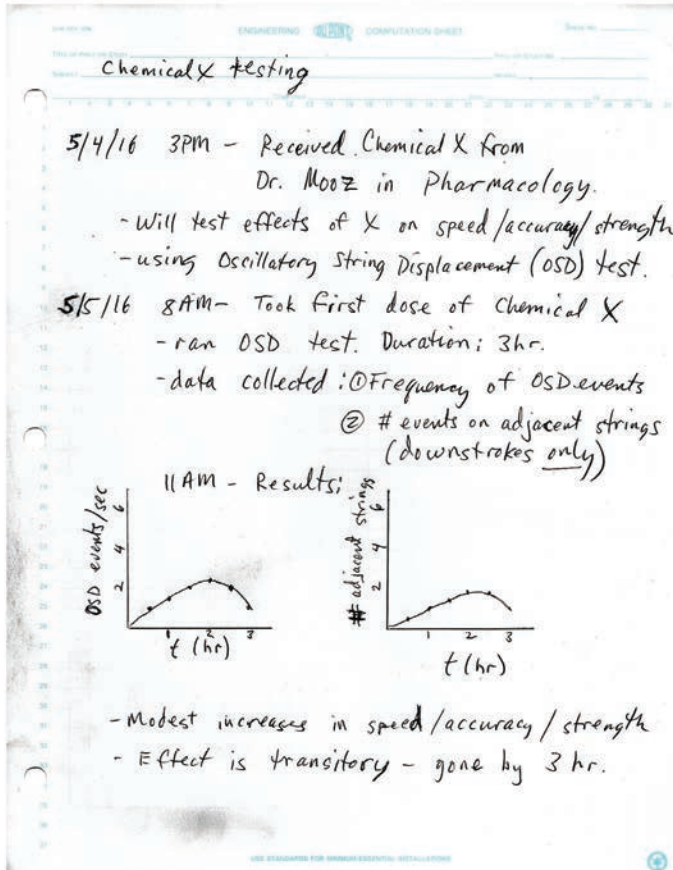 ENGINEERING DU PONT COMPUTATION SHEET
Chemical X testing
5/4/16 3PM - Received Chemical X from
Dr. Mooz in Pharmacology.
- Will test effects of X on speed/accuracy/strength
- using Oscillatory String Displacement (OSD) test.
5/5/16 8AM- Took first dose of Chemical X
- ran OSD test. Duration: 3hr.
- data collected: ① Frequency of OSD events
② # events on adjacent strings
(downstrokes only)
11AM - Results:
OSD events/sec
6
4
2
1 2 3
t (hr)
# adjacent strings
6
4
2
1 2 3
t (hr)
- Modest increases in speed/accuracy/strength
- Effect is transitory - gone by 3 hr.